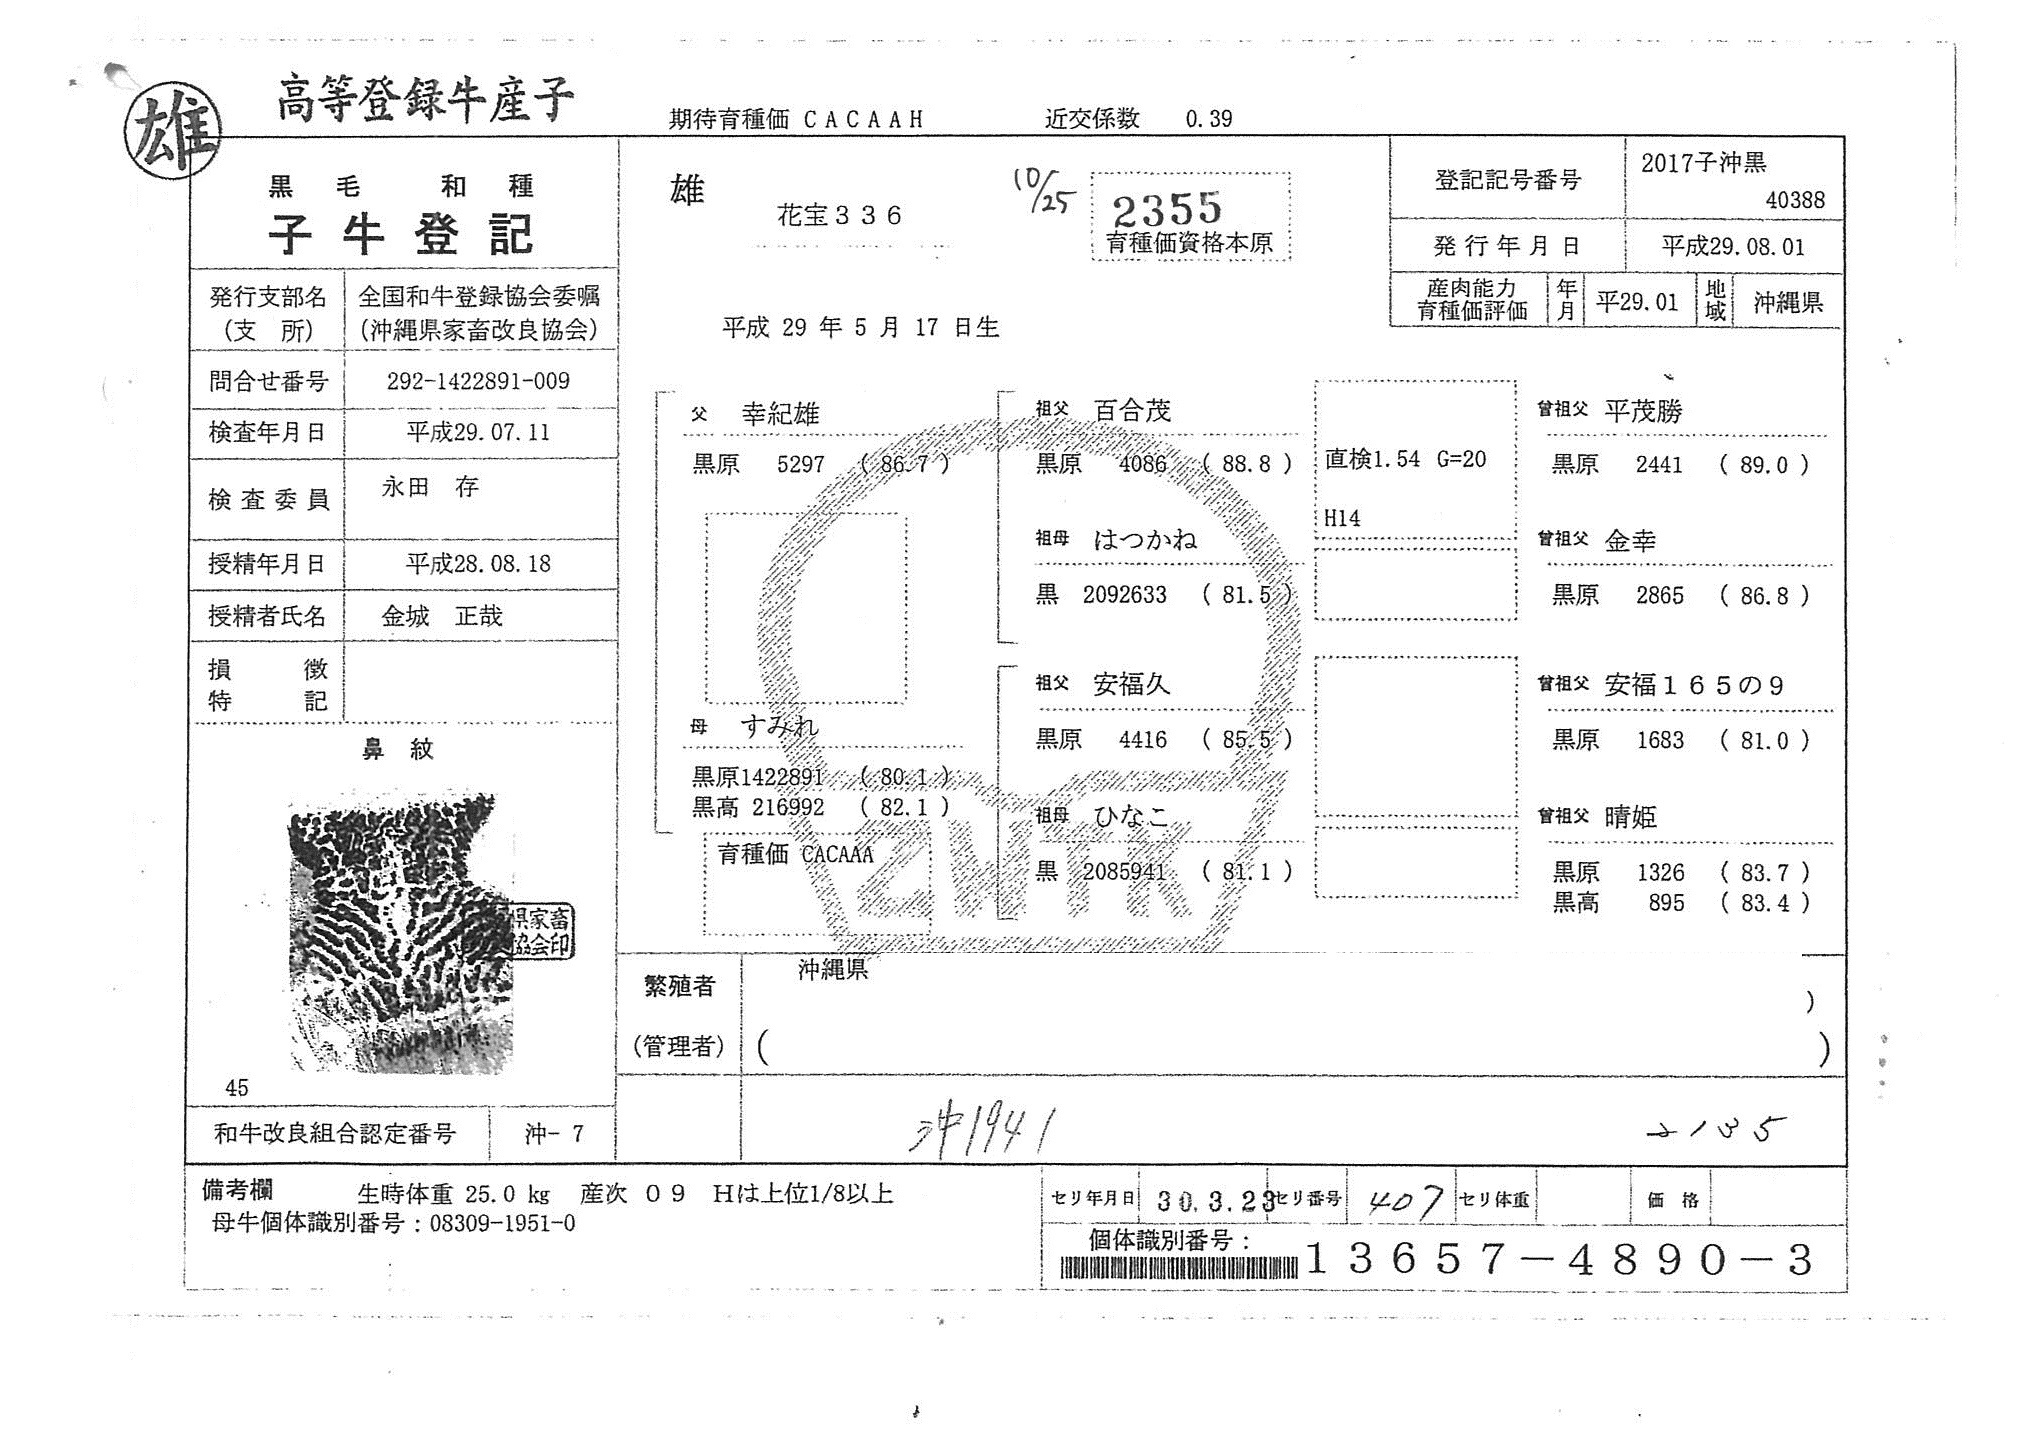 雄
高等登録牛産子
期待育種価 CACAAH 近交係数 0.39
黒毛和種
子牛登記
発行支部名 全国和牛登録協会委嘱
(支 所) (沖縄県家畜改良協会)
問合せ番号 292-1422891-009
検査年月日 平成29.07.11
検査委員 永田 存
授精年月日 平成28.08.18
授精者氏名 金城 正哉
損徴
特記
鼻紋
県家畜
協会印
45
和牛改良組合認定番号 沖-7
雄
花宝336
10/25
2355
育種価資格本原
平成 29 年 5 月 17 日生
登記記号番号 2017子沖黒
40388
発行年月日 平成29.08.01
産肉能力
育種価評価 年月 平29.01 地域 沖縄県
父 幸紀雄
黒原 5297 (86.7)
母 すみれ
黒原1422891 (80.1)
黒高 216992 (82.1)
育種価 CACAAA
祖父 百合茂
黒原 4086 (88.8)
直検1.54 G=20
H14
祖母 はつかね
黒 2092633 (81.5)
祖父 安福久
黒原 4416 (85.5)
祖母 ひなこ
黒 2085941 (81.1)
曾祖父 平茂勝
黒原 2441 (89.0)
曾祖父 金幸
黒原 2865 (86.8)
曾祖父 安福165の9
黒原 1683 (81.0)
曾祖父 晴姫
黒原 1326 (83.7)
黒高 895 (83.4)
ZWTK
繁殖者 沖縄県
)
(管理者) ( )
沖1941
2135
備考欄 生時体重 25.0 kg 産次 09 Hは上位1/8以上
母牛個体識別番号:08309-1951-0
セリ年月日 30.3.23 セリ番号 407 セリ体重 価格
個体識別番号:
13657-4890-3